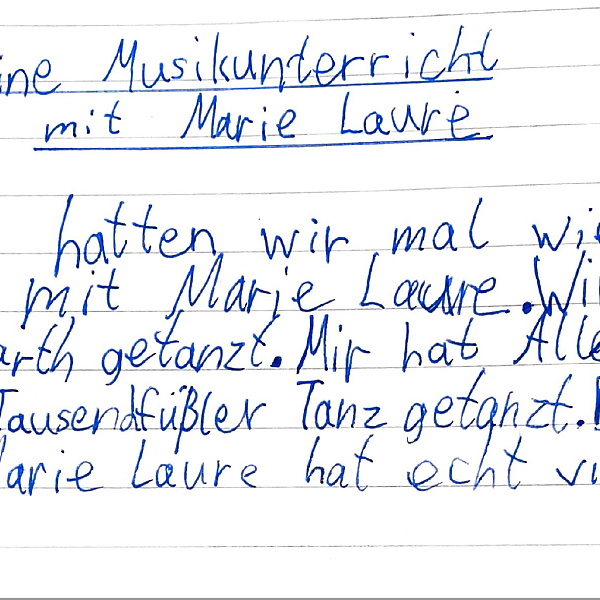 ine Musikunterricht
mit Marie Laure
hatten wir mal wi
mit Marie Laure. Wi
arth getanzt. Mir hat Alle
Tausendfüßler Tanz getanzt.
arie Laure hat echt vi